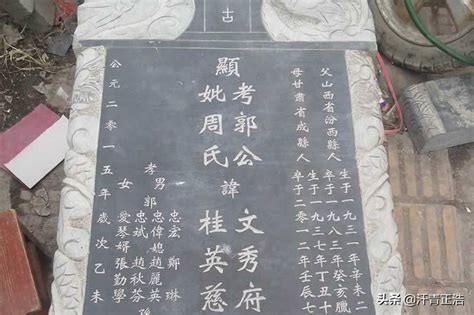 古
父山西省汾西縣人
生于一九三一年辛未二
卒于一九八三年癸亥臘
母甘肅省成縣人
生于一九三七年丁丑十
卒于二〇一二年壬辰七
顯考郭公諱文秀府
妣周氏桂英慈
孝男郭
忠宏 鄭琳
忠偉媳趙麗英
忠斌 趙秋芬
女愛琴婿張勤學
公元二〇一五年歲次乙未
头条 @汗青正浩